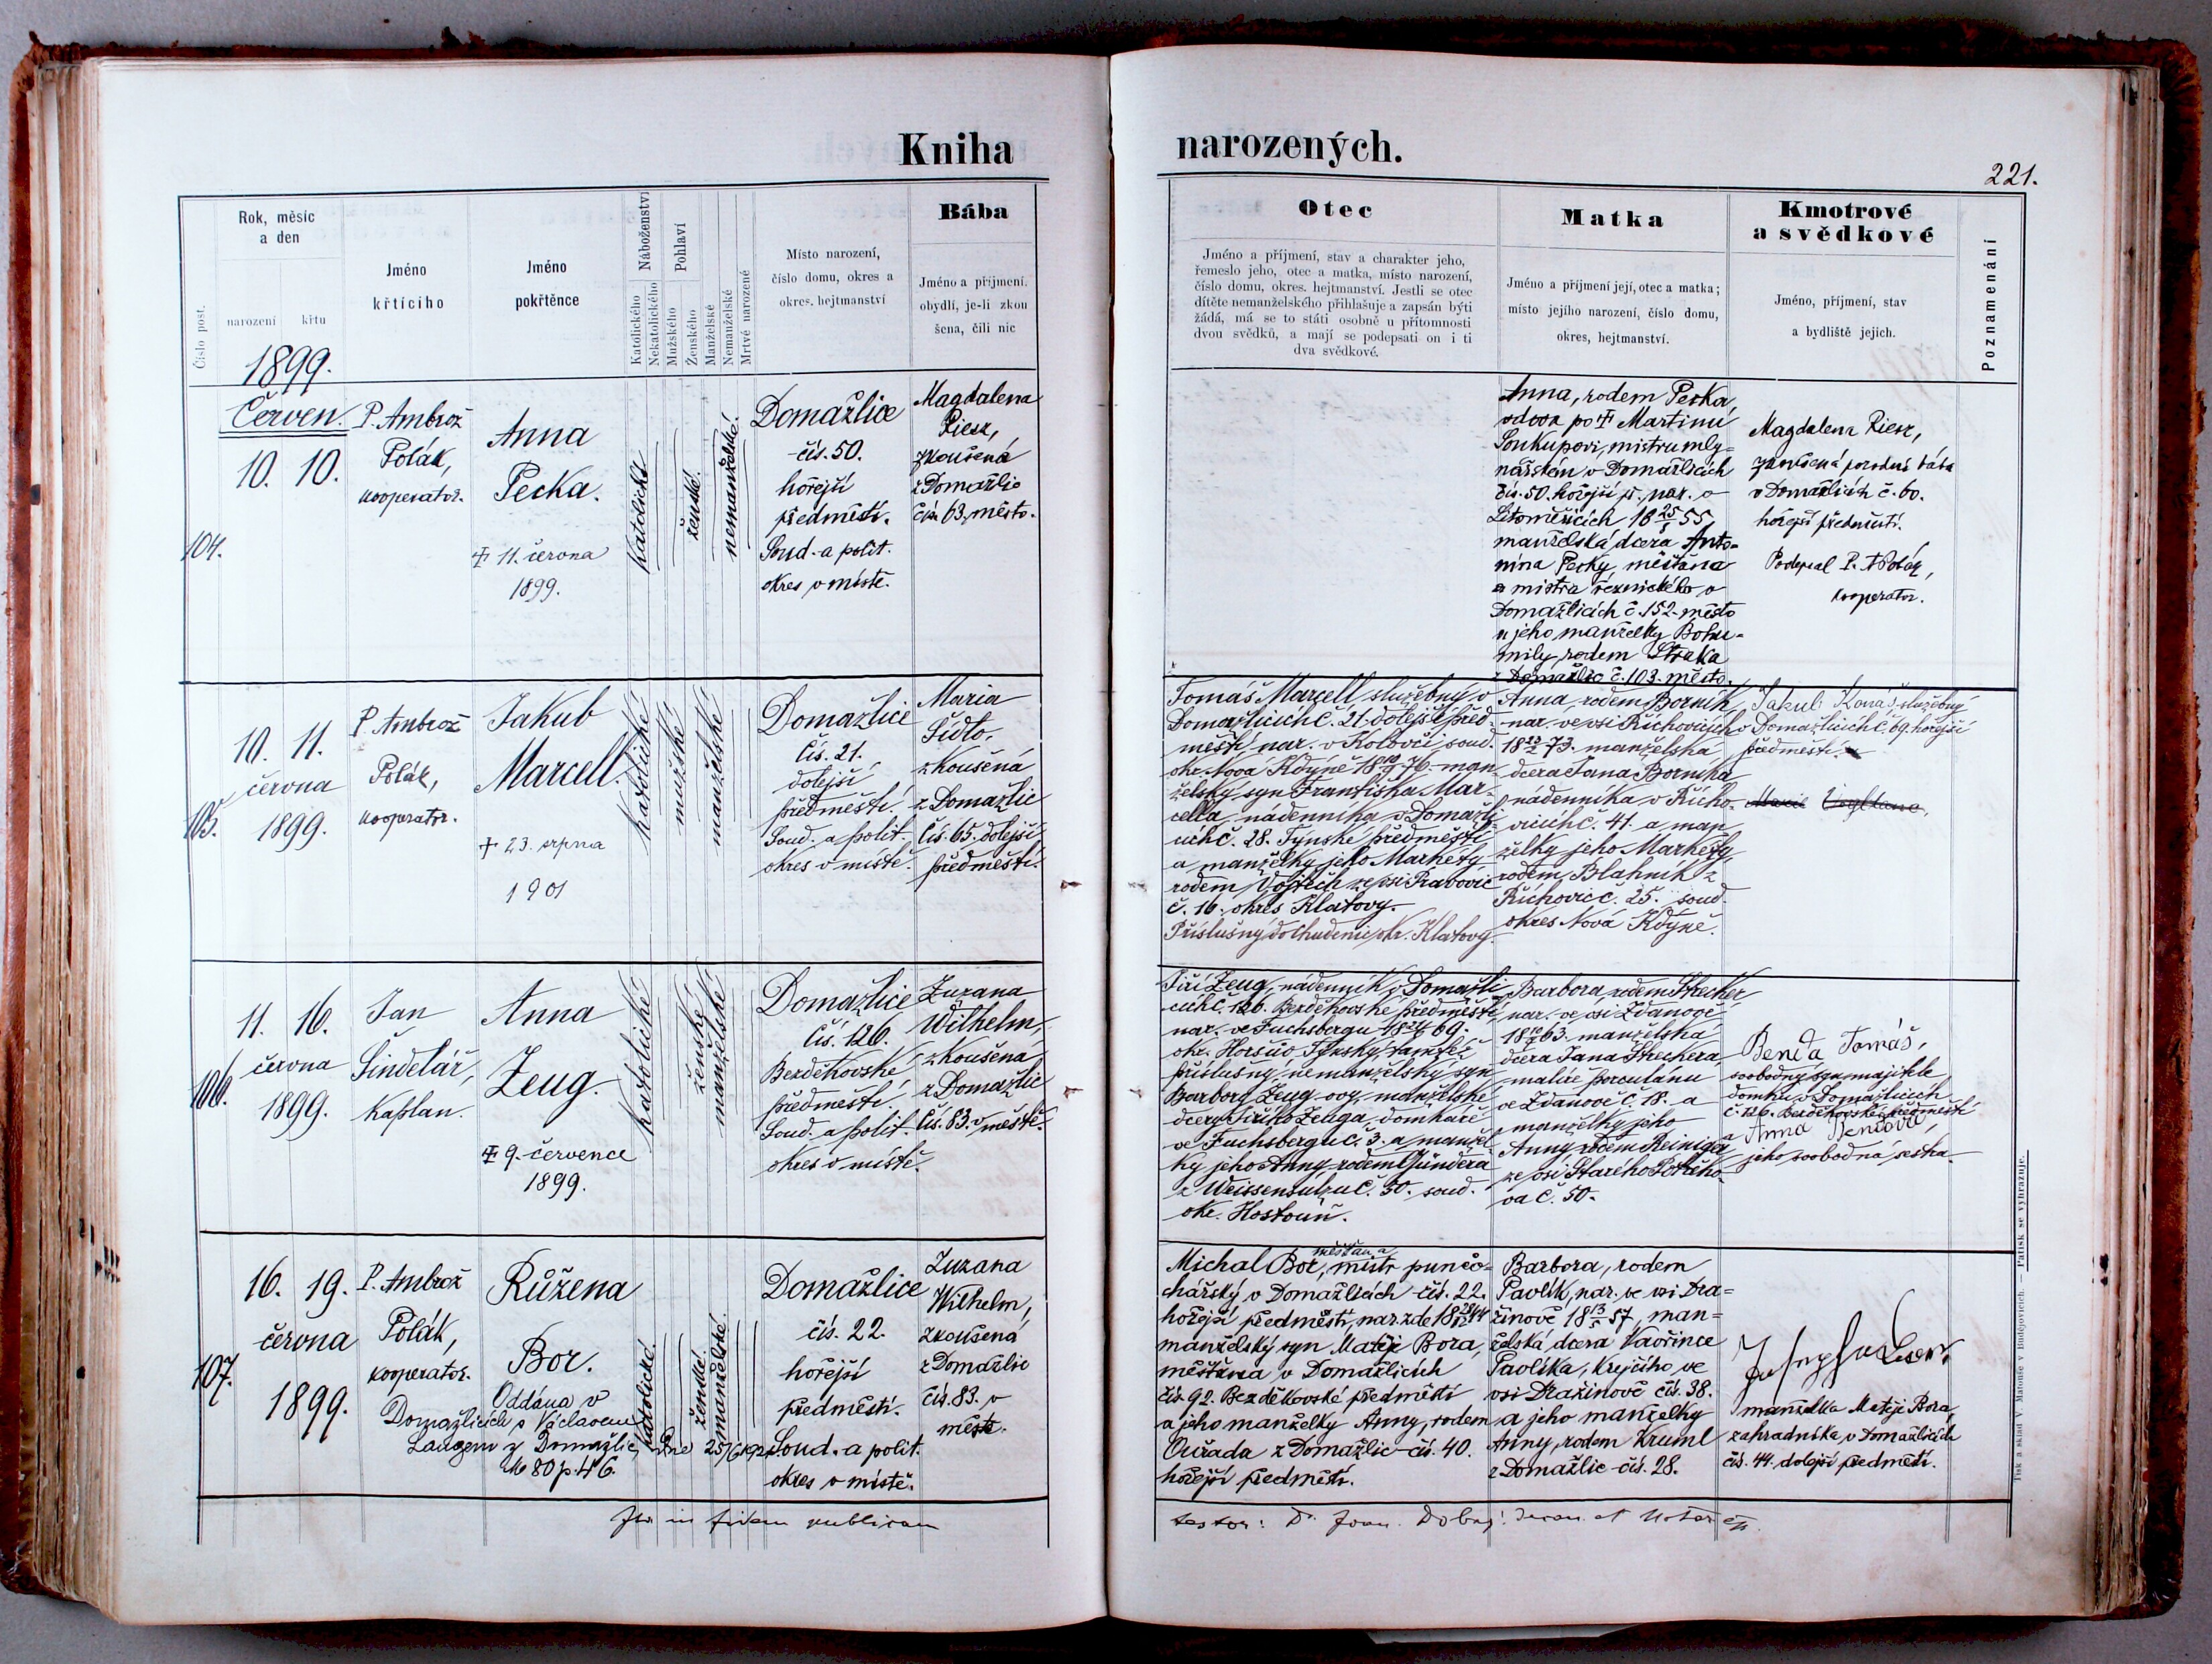 Kniha
narozených.
221.
Číslo post.
Rok, měsíc
a den
narození
křtu
Jméno
křtícího
Jméno
pokřtěnce
Náboženství
Katolického
Nekatolického
Pohlaví
Mužského
Ženského
Manželské
Nemanželské
Mrtvé narozené
Místo narození,
číslo domu, okres a
okres. hejtmanství
Bába
Jméno a příjmení.
obydlí, je-li zkou
šena, čili nic
Otec
Jméno a příjmení, stav a charakter jeho,
řemeslo jeho, otec a matka, místo narození,
číslo domu, okres. hejtmanství. Jestli se otec
dítěte nemanželského přihlašuje a zapsán býti
žádá, má se to státi osobně u přítomnosti
dvou svědků, a mají se podepsati on i ti
dva svědkové.
Matka
Jméno a příjmení její, otec a matka;
místo jejího narození, číslo domu,
okres, hejtmanství.
Kmotrové
a svědkové
Jméno, příjmení, stav
a bydliště jejich.
Poznamenání
1899.
Červen.
104.
10. 10.
P. Ambrož
Polák,
kooperator.
Anna
Pecka.
‡ 11. června
1899.
katolické
ženské.
nemanželské!
Domažlice
čís. 50.
hořejší
předměstí.
Soud. a polit.
okres v místě.
Magdalena
Riesz,
zkoušená
z Domažlic
čís. 63, město.
Anna, rodem Pecka,
vdova po ‡ Martinu
Soukupovi, mistru mly=
nářském v Domažlicích
čís. 50. hořejší př. nar. v
Litoměřicích 18 25/5 55
manželská dcera Anto=
nína Pecky, měšťana
a mistra řeznického v
Domažlicích č. 152. město
a jeho manželky Bohu=
mily, rodem Straka
z Domažlic č. 103. město.
Magdalena Riesz,
zkoušená porodní bába
v Domažlicích č. 60.
hořejší předměstí.
Podepsal P. A Polák,
kooperator.
105.
10. 11.
června
1899.
P. Ambrož
Polák,
kooperator.
Jakub
Marcell.
+ 23. srpna
1901
katolické
mužské
manželské
Domažlice
Čís. 21.
dolejší
předměstí.
Soud. a polit.
okres v místě.
Maria
Šídlo,
zkoušená
z Domažlic
Čís. 65. dolejší
předměstí.
Tomáš Marcell, služebný v
Domažlicích č. 21. dolejší před-
městí, nar. v Koloveči, soud.
okr. Nová Kdýně 76. man-
želský syn Františka Mar-
cella, nádenníka v Domažli-
cích č. 28. Týnské předměstí
a manželky jeho Markéty
rodem Vojtěch ze vsi Pravovic
č. 16. okres Klatovy.
Příslušný do Chudenic, okr. Klatovy.
Anna, rodem Borník,
nar. ve vsi Říchovicích
73. manželská
dcera Jana Borníka
nádenníka v Řícho-
vicích č. 41. a man
želky jeho Markéty,
rodem Blahník z
Říchovic č. 25. soud.
okres Nová Kdýně.
Jakub Konáš, služebný
v Domažlicích č. 69. hořejší
předměstí.
106.
11. 16.
června
1899.
Jan
Šindelář,
kaplan.
Anna
Zeug.
‡ 9. července
1899.
katolické
ženské
manželské
Domažlice
Čís. 126.
Bezděkovské
předměstí.
Soud. a polit.
okres v místě.
Zuzana
Wilhelm,
zkoušená
z Domažlic
Čís. 83. v městě.
Jiří Zeug, nádenník v Domažli
cích č. 126. Bezděkovské předměstí,
nar. ve Fuchsbergu 69.
okr. Horšův Týnský, tamtéž
příslušný, nemanželský syn
Barbory Zeug ovy, manželské
dcery Jiřího Zeuga, domkáře
ve Fuchsbergu č. 3. a manžel
ky jeho Anny rodem Gündera
z Weissensulzu č. 30. soud.
okr. Hostouň.
Barbora, rodem Strecker,
nar. ve vsi Ždanově
63. manželská
dcera Jana Streckera,
malíře porculánu
ve Ždanově č. 18. a
manželky jeho
Anny, rodem Reiniger
ze vsi Starého
va č. 50.
Benda Tomáš,
svobodný syn majitele
domku v Domažlicích
č. 126. Bezděkovské předměstí
a Anna Bendová,
jeho svobodná sestra.
107.
16. 19.
června
1899.
P. Ambrož
Polák,
kooperator.
Růžena
Bor.
Oddána v
Domažlicích s Václavem
Langem z Domažlic, dne 25/6 192
80 p. 46.
katolické
ženské.
manželské.
Domažlice
čís. 22.
hořejší
předměstí.
Soud. a polit.
okres v místě.
Zuzana
Wilhelm,
zkoušená
z Domažlic
čís. 83. v
městě.
měšťan a
Michal Bor, mistr punčo=
chářský v Domažlicích čís. 22.
hořejší předměstí, nar. zde
manželský syn Matěje Bora,
měšťana v Domažlicích
čís. 92. Bezděkovské předměstí
a jeho manželky Anny, rodem
Ouřada z Domažlic čís. 40.
hořejší předměstí.
Barbora, rodem
Pavlík, nar. ve vsi Dra=
žinově 18 13/5 57, man=
želská dcera Vavřince
Pavlíka, krejčího ve
vsi Dražinově čís. 38.
a jeho manželky
Anny, rodem Kruml
z Domažlic čís. 28.
manželka Matěje Bora,
zahradníka v Domažlicích
čís. 44. dolejší předměstí.
in fidem publicam
testor: Dr. Joan.
Tisk a sklad V. Matouše v Budějovicích. — Patisk se vyhrazuje.